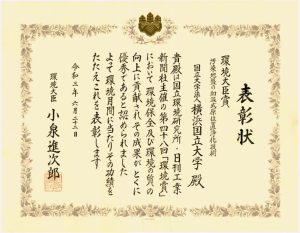 表彰状
環境大臣賞
汚染地盤の加温式原位置浄化技術
国立大学法人 横浜国立大学 殿
貴殿は国立環境研究所・日刊工業
新聞社主催の第四十八回「環境賞」
において環境保全及び環境の質の
向上に貢献されその成果がとくに
優秀であると認められました
よって環境月間に当たりその功績を
たたえこれを表彰します
令和三年六月二十二日
環境大臣 小泉進次郎